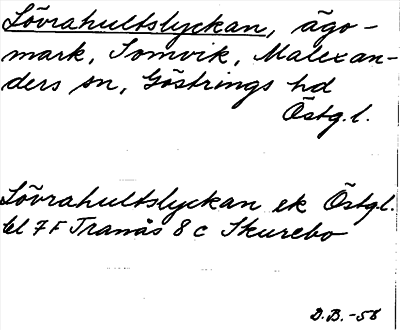 Lövrahultslyckan, ägo-
mark, Somvik, Malexan-
ders sn, Göstrings hd
Östg.l.
Lövrahultslyckan ek Östg.l.
bl 7F Tranås 8c Skurebo
D.B.-58